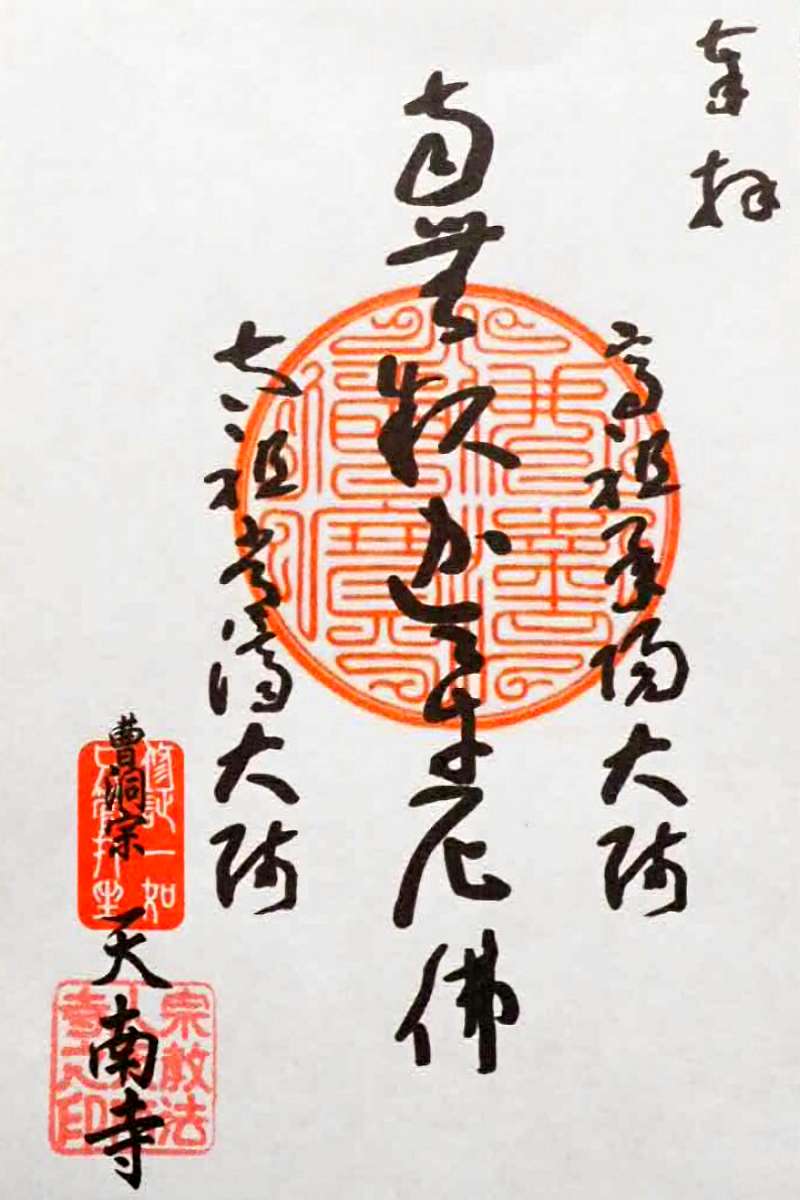 奉拝
高祖承陽大師
南無釈迦牟尼佛
太祖常済大師
曹洞宗 天南寺
修証一如
只管打坐
宗教法